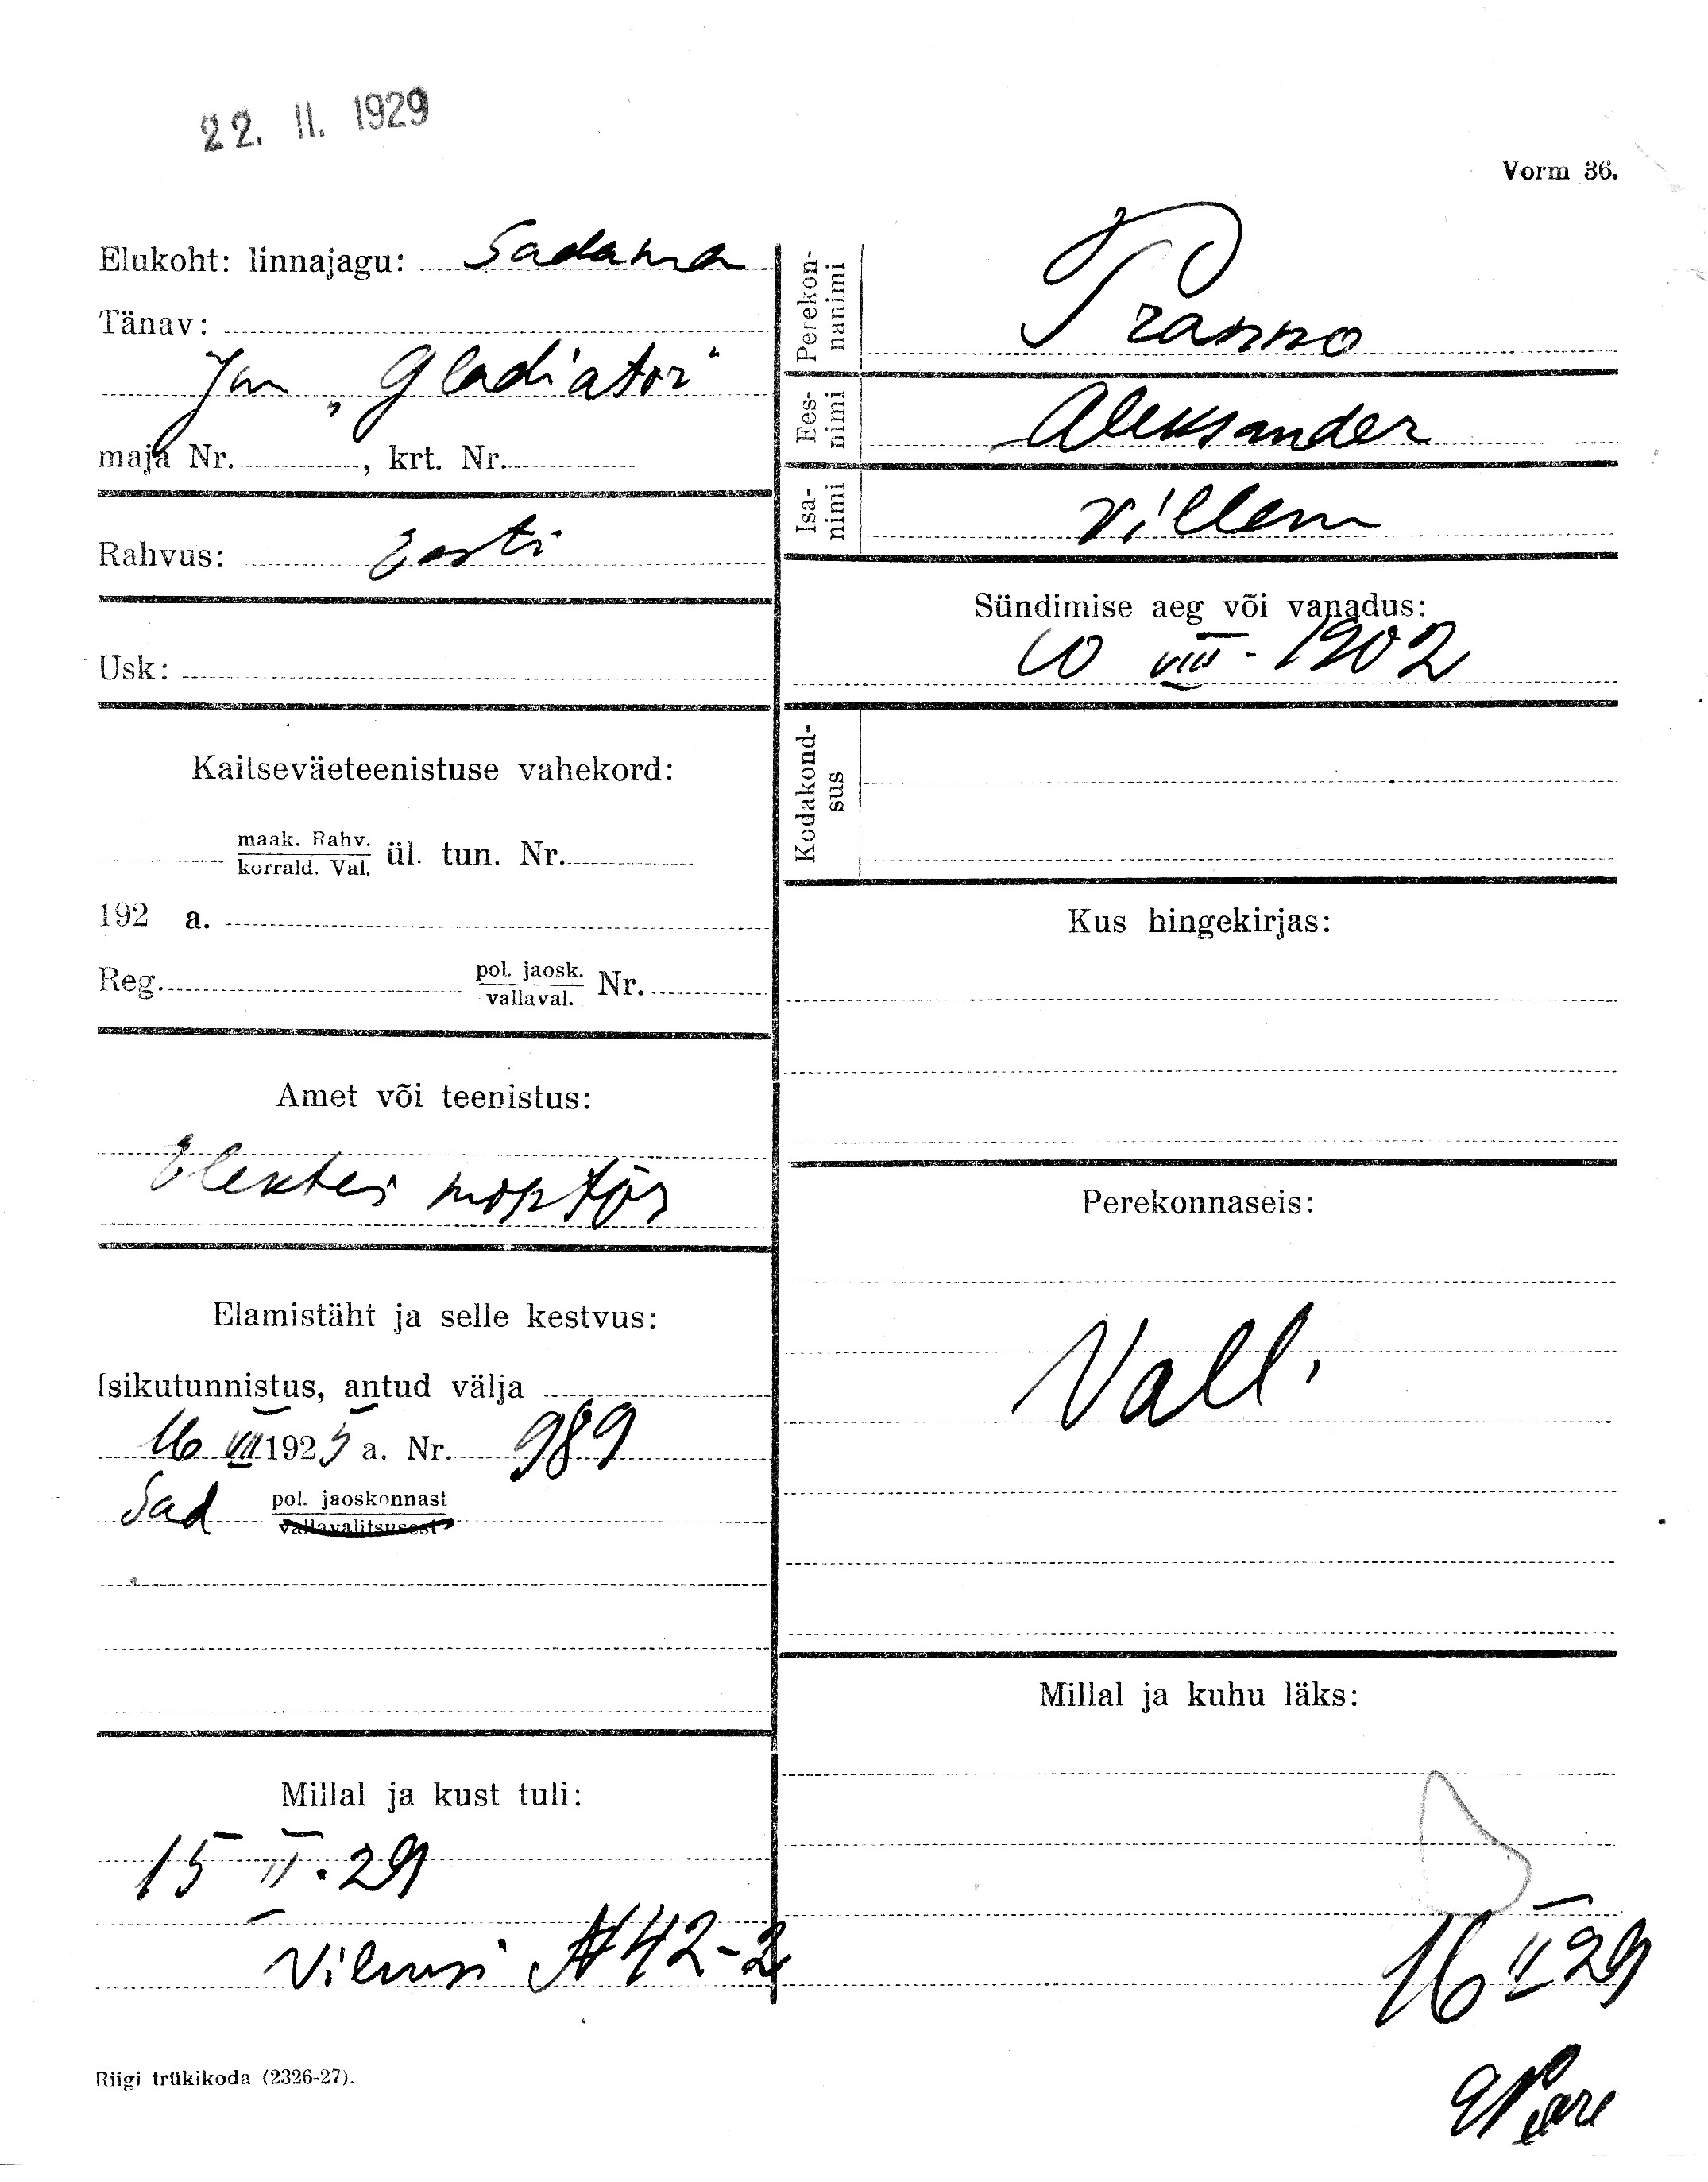 22. II. 1929
Vorm 36.
Elukoht: linnajagu: Sadama
Tänav:
Jm „Gladiator"
maja Nr. , krt. Nr.
Rahvus: Eesti
Usk:
Kaitseväeteenistuse vahekord:
maak. Rahv.
korrald. Val. ül. tun. Nr.
192 a.
Reg. pol. jaosk.
vallaval. Nr.
Amet või teenistus:
Elektri montör
Elamistäht ja selle kestvus:
Isikutunnistus, antud välja
16 VII 1925 a. Nr. 989
Sad pol. jaoskonnast
vallavalitsusest
Millal ja kust tuli:
15 II. 29
Vilmsi N 42-2
Riigi trükikoda (2326-27).
Perekon-
nanimi
Pranno
Ees-
nimi
Aleksander
Isa-
nimi
Villem
Sündimise aeg või vanadus:
10 VIII - 1902
Kodakond-
sus
Kus hingekirjas:
Perekonnaseis:
Vall.
Millal ja kuhu läks:
16 II 29